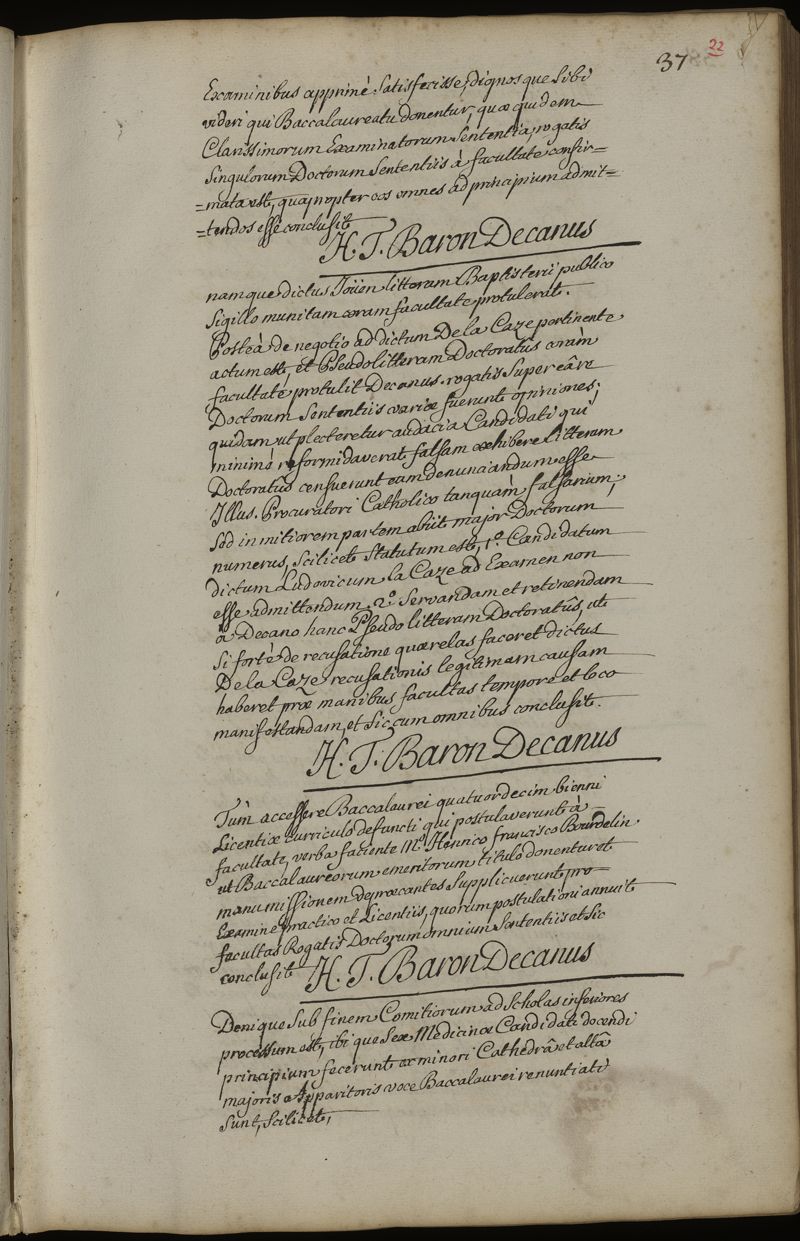 37 22
Examinibus apprimè Satisfecisse, dignosque Sibi
videri qui Baccalaureatu donentur, quæ quidem
Clarissimorum Examinatorum Sententia, rogatis
Singulorum Doctorum Sententiis à facultate confir=
=mata est, quapropter eos omnes ad principium admit=
=tendos esse conclusit
H. T. Baron Decanus
namque dictus Joüen litteram Baptisterii publico
Sigillo munitam coram facultate protulerat.
Posteà de negotio ad dictum De la Caze pertinente
actum est, et Pseudolitteram Doctoratûs coràm
facultate protulit Decanus. rogatis Super eâ re
Doctorum Sententiis variæ fuerunt opiniones;
quidam ut plecteretur audacia Candidati qui
minimè reformidaverat falsam exhibere Litteram
Doctoratus censuerunt eam denunciandum esse
Illus. Procuratori Catholico tanquàm falsarium;
Sed in mitiorem partem abiit major Doctorum
numerus, Scilicet Statutum est, 1.º Candidatum
dictum Ludovicum la Caze ad Examen non
esse admittendum, 2.º Servandam et retinendam
à Decano hanc Pseudolitteram Doctoratûs, ut
Si fortè de recusatione quærelas faceret dictus
De la Caze recusationis legitimam causam
haberet præ manibus facultas tempore et loco
manifestandam, et Sic cum omnibus conclusit.
H. T. Baron Decanus
Tùm accessere Baccalaurei quatuordecim bienni
Licentiæ curriculo defuncti qui postulaverunt à
facultate, verba faciente M.º Henrico francisco Bourdelin.
ut Baccalaureorum emeritorum titulo donentur et
manumissionem deprecantes Supplicuerunt pro
Examine Practico et Licentiis, quorum postulationi annuit
facultas Rogatis Doctorum omnium Sententiis et Sic
conclusit H. T. Baron Decanus
Denique Sub finem Comitiorum ad Scholas inferiores
processum est, ibique Sex Medicinæ Candidati docendi
principium fecerunt ex minori Cathedrâ et altâ
majoris Apparitoris voce Baccalaurei renuntiati
Sunt, Scilicet,